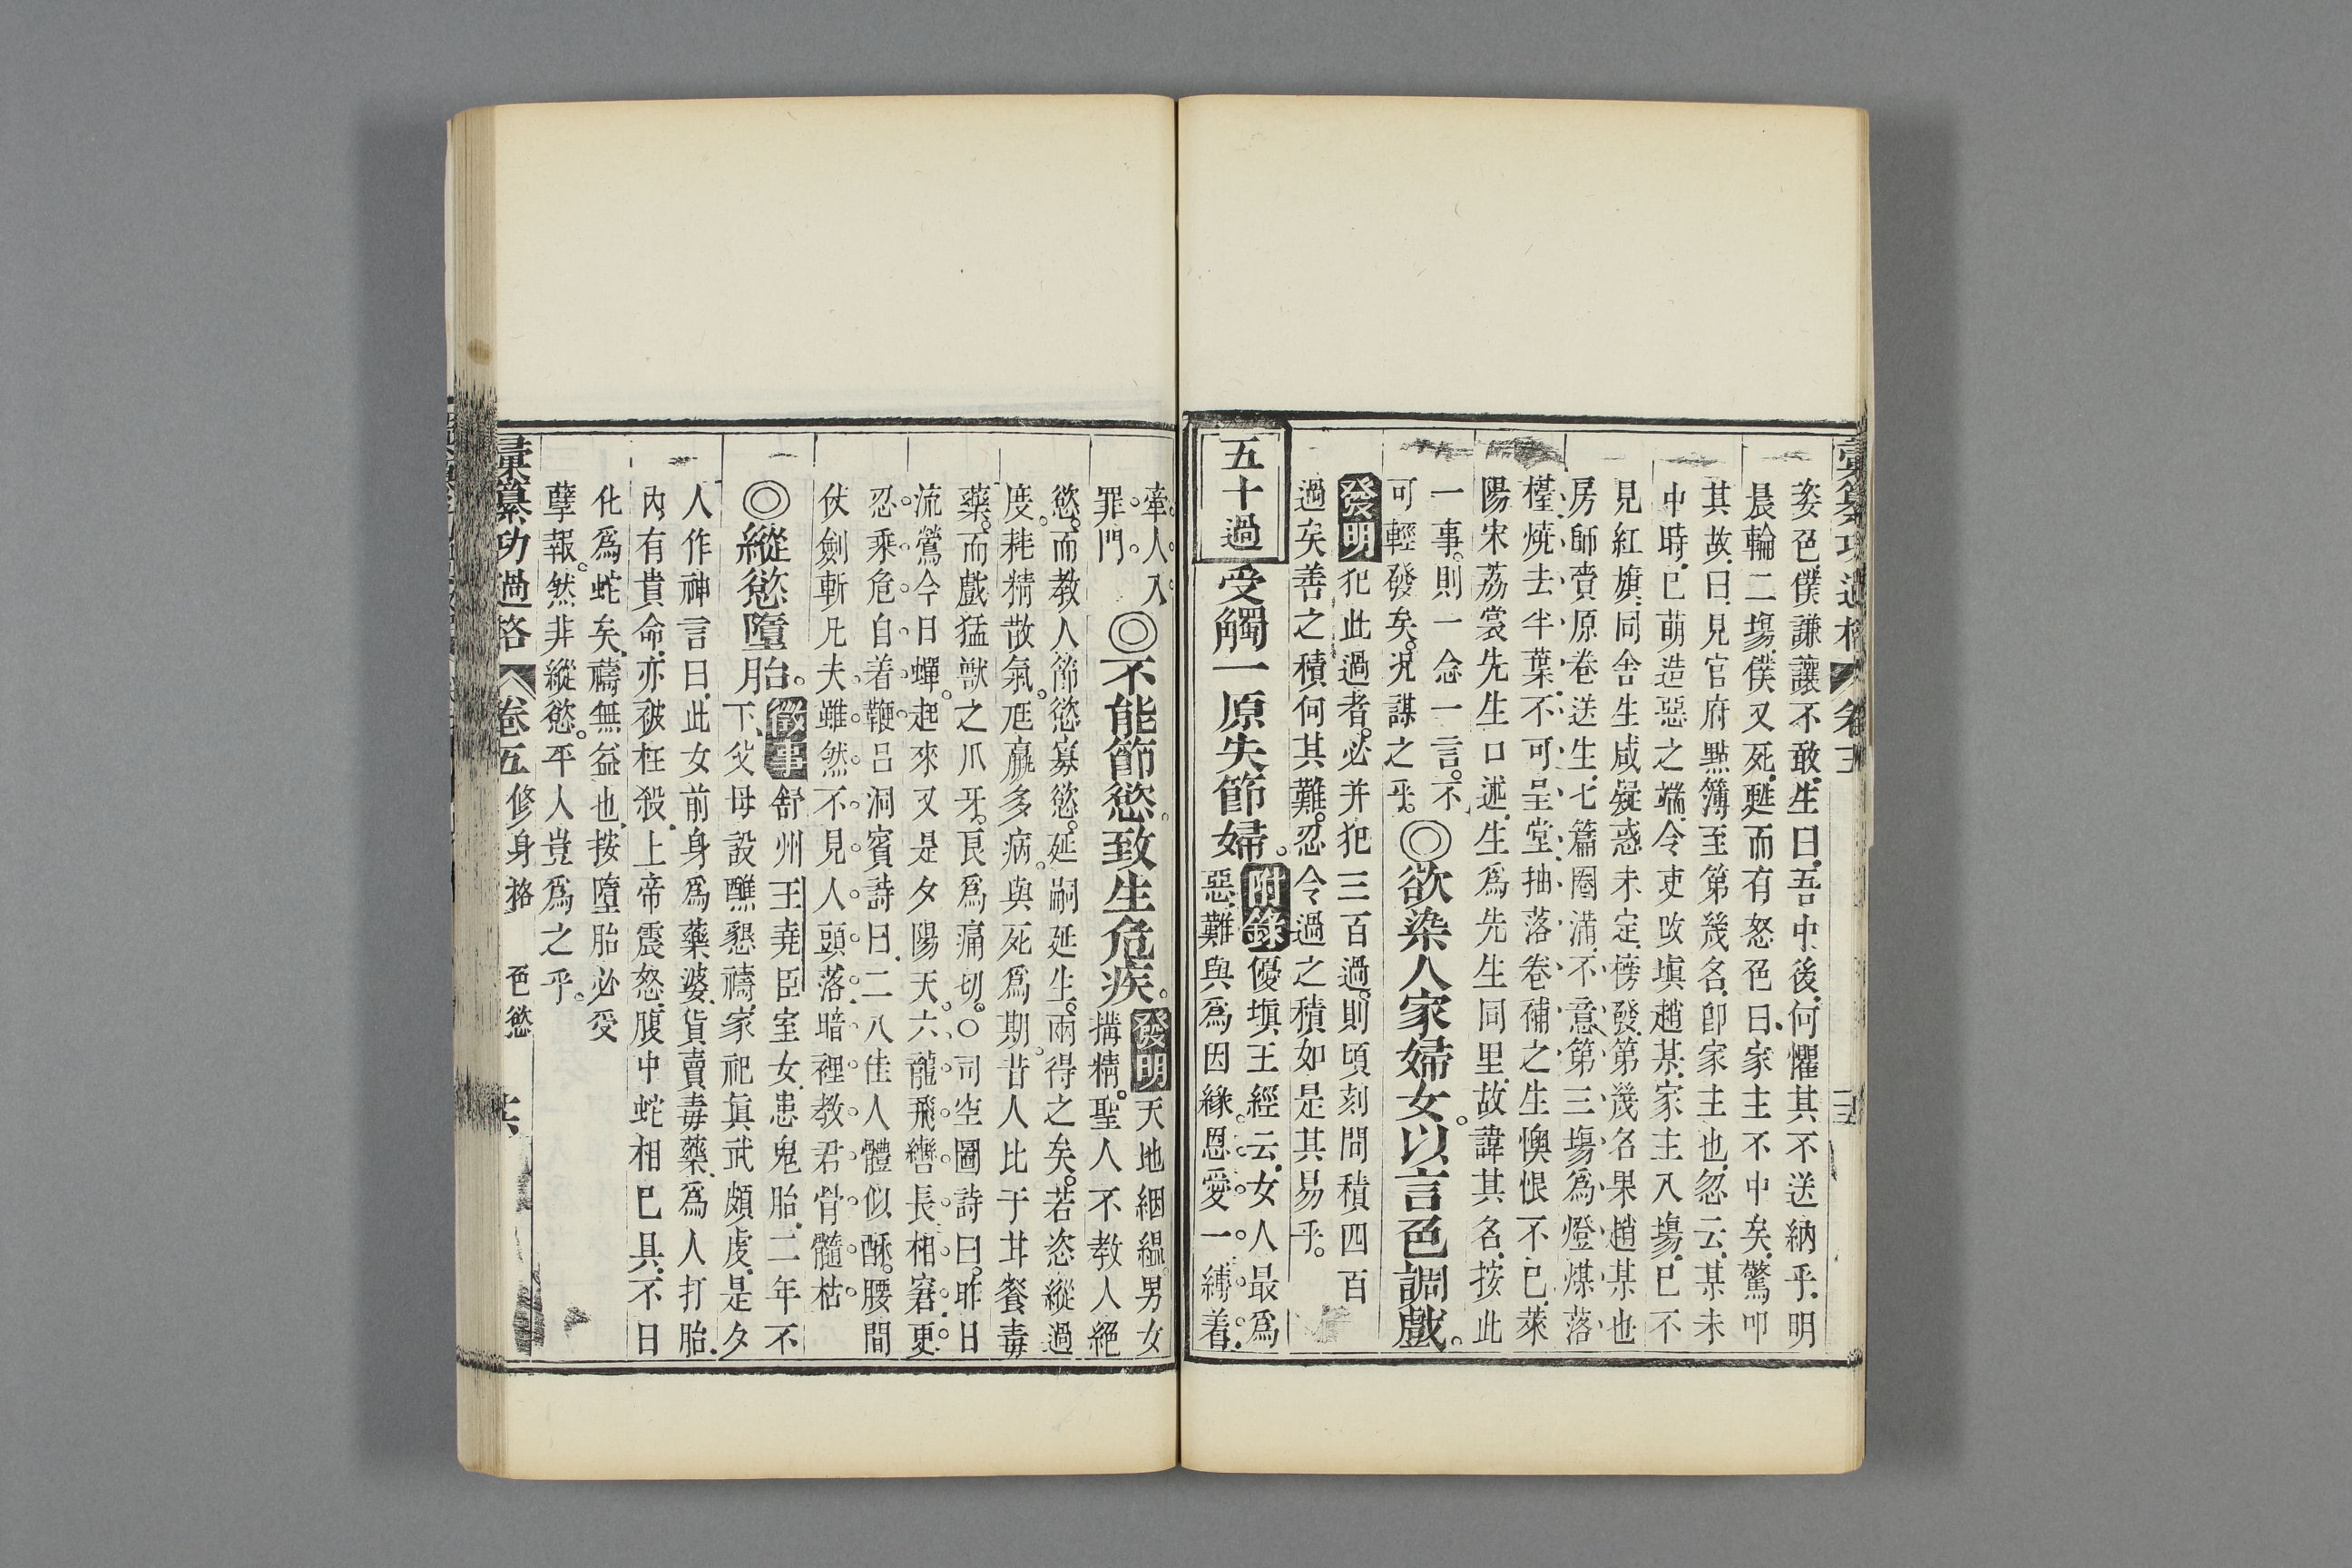 彙纂功過格 卷五
姿色僕謙讓不敢生曰吾中後何懼其不送納乎明
晨輪二塲僕又死甦而有怒色曰家主不中矣驚叩
其故曰見官府點簿至第幾名卽家主也忽云某未
中時已萌造惡之端令吏改塡趙某家主入塲已不
見紅旗同舍生咸疑惑未定榜發第幾名果趙某也
房師賫原卷送生七篇圈滿不意第三塲爲燈煤落
檯燒去半葉不可呈堂抽落卷補之生懊恨不已萊
陽宋荔裳先生口述生爲先生同里故諱其名按此
一事則一念一言不
可輕發矣况謀之乎
◎欲染人家婦女以言色調戲
發明犯此過者必并犯三百過則頃刻間積四百
過矣善之積何其難忍令過之積如是其易乎
五十過 受觸一原失節婦
附錄優塡王經云女人最爲
惡難與爲因緣恩愛一縛着
牽人入
罪門
◎不能節慾致生危疾
發明天地絪縕男女
搆精聖人不教人絕
慾而教人節慾寡慾延嗣延生兩得之矣若恣縱過
度耗精散氣尫羸多病與死爲期昔人比于甘餐毒
藥而戲猛獸之爪牙良爲痛切○司空圖詩曰昨日
流鶯今日蟬起來又是夕陽天六龍飛轡長相窘更
忍乘危自着鞭呂洞賓詩曰二八佳人體似酥腰間
仗劍斬凡夫雖然不見人頭落暗裡教君骨髓枯
◎縱慾墮胎
徵事舒州王堯臣室女患鬼胎二年不
下父母設醮懇禱家祀眞武頗虔是夕
人作神言曰此女前身爲藥婆貨賣毒藥爲人打胎
內有貴命亦被枉殺上帝震怒腹中蛇相已具不日
化爲蛇矣禱無益也按墮胎必受
孽報然非縱慾平人豈爲之乎
彙纂功過格 卷五 修身格 色慾